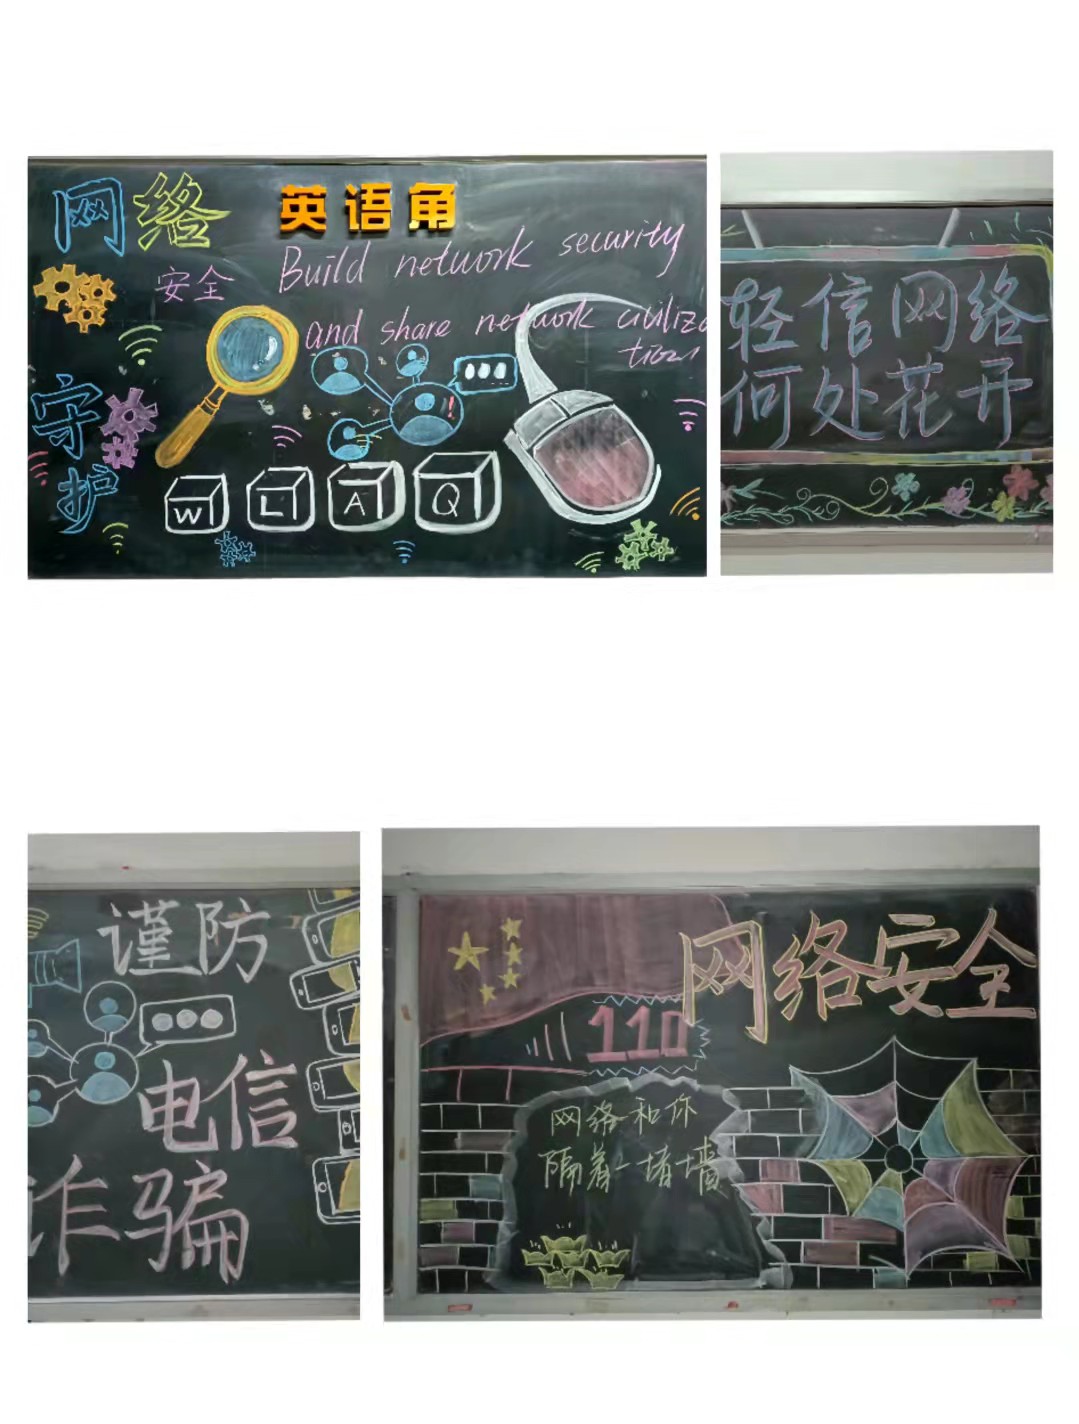 网络
英语角
安全
Build network security
and share network civiliza
tion
守护
W
L
A
Q
轻信网络
何处花开
谨防
电信
诈骗
网络安全
110
网络和你
隔着一堵墙